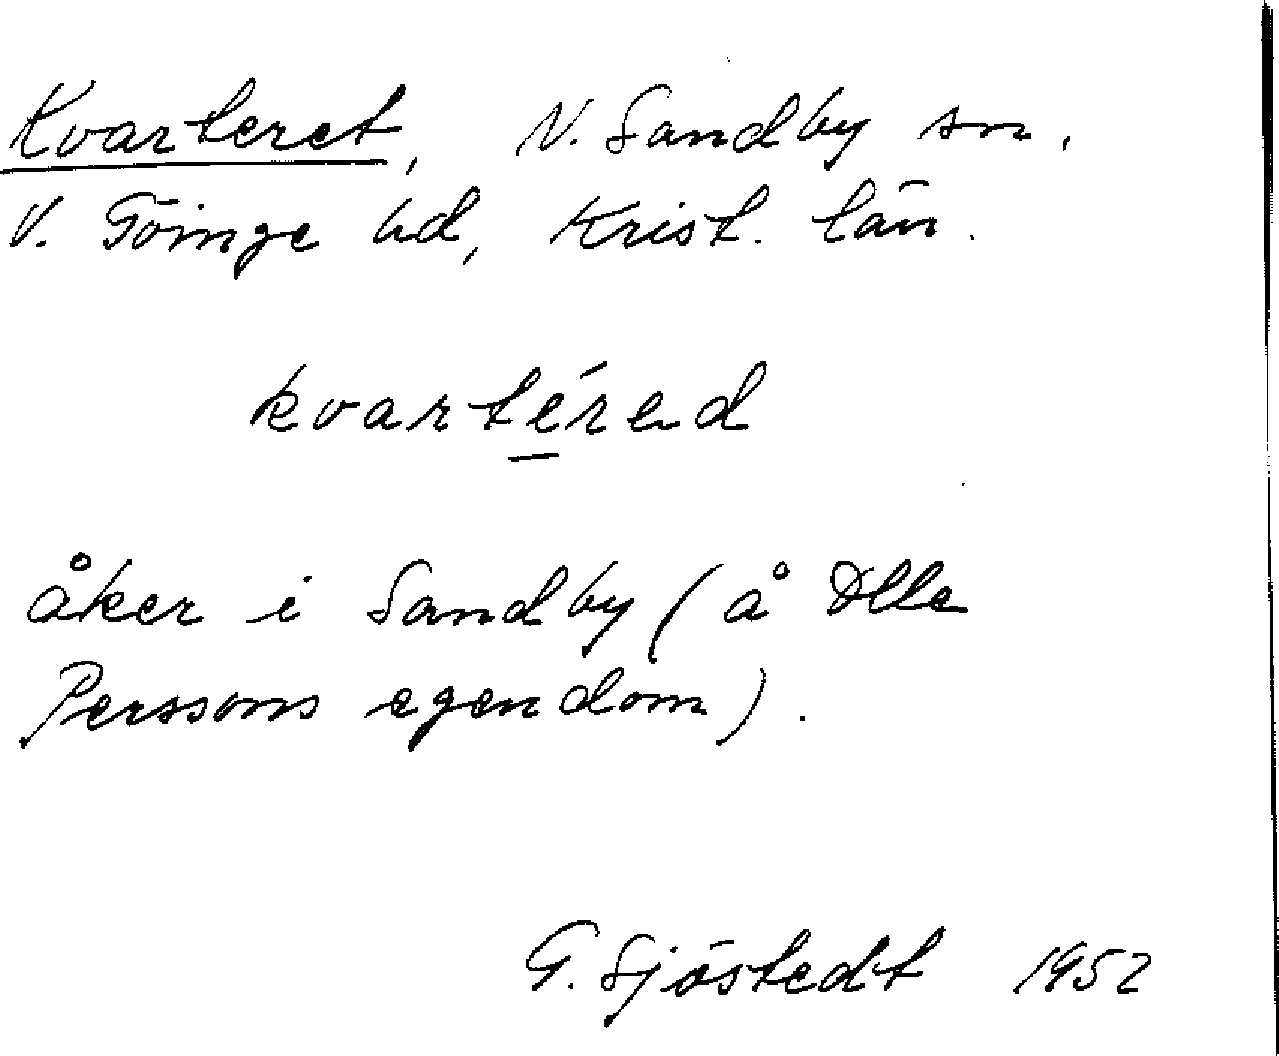 Kvarteret, N. Sandby sn.
V. Göinge hd, Krist. län.
kvartéred
åker i Sandby (å Olle
Perssons egendom).
G. Sjöstedt 1952